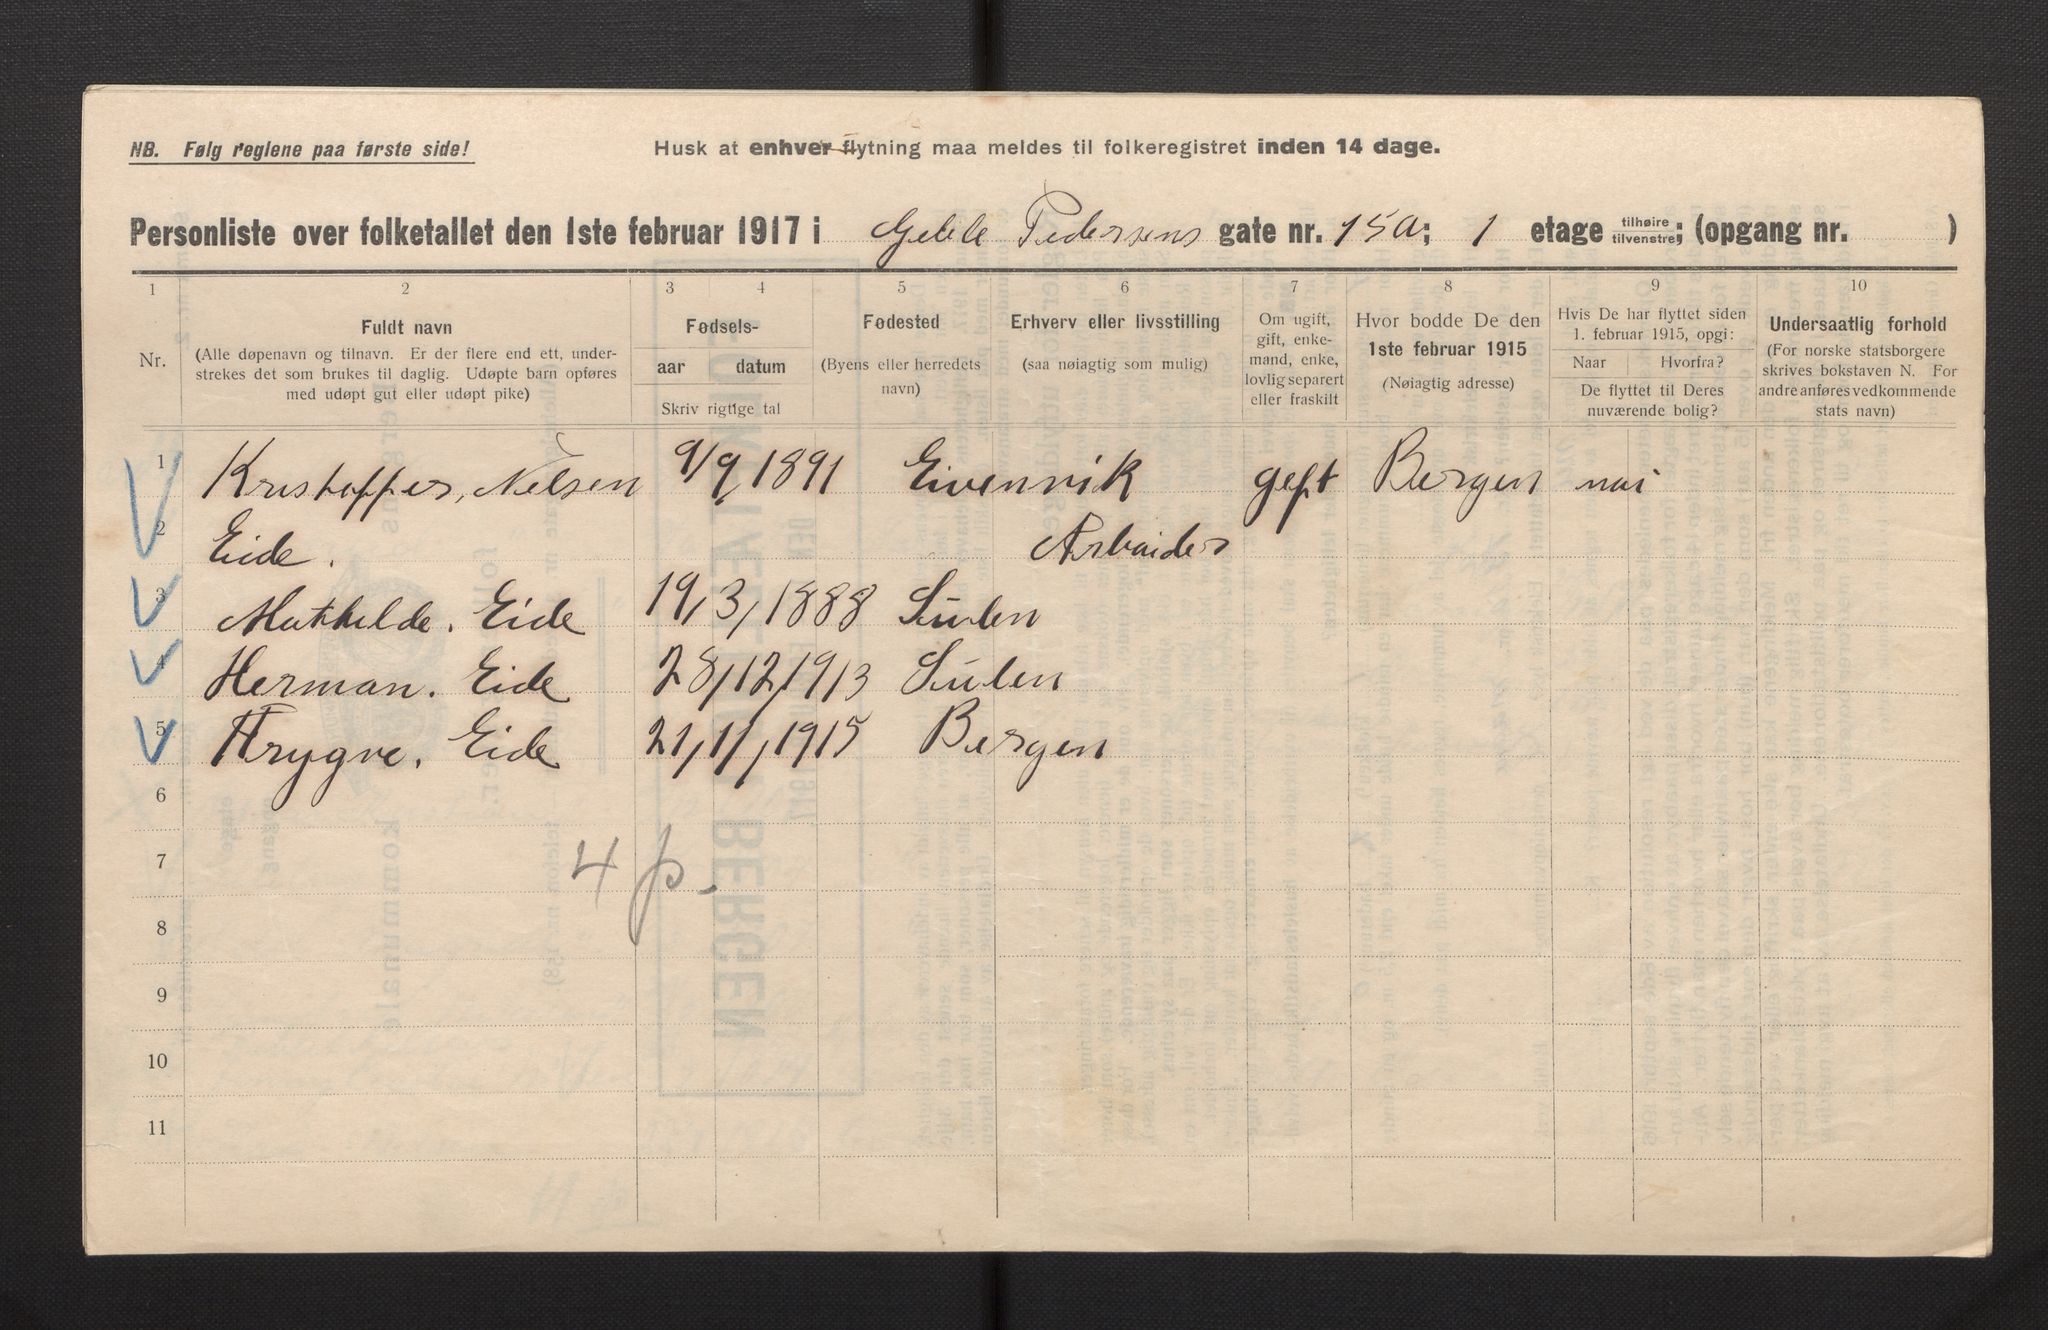 NB. Følg reglene paa første side!
Husk at enhver flytning maa meldes til folkeregistret inden 14 dage.
Personliste over folketallet den 1ste februar 1917 i Gjelle Pedersens gate nr. 15a; 1 etage tilhøire tilvenstre; (opgang nr. )
1 2 3 4 5 6 7 8 9 10
Nr.
Fuldt navn
(Alle døpenavn og tilnavn. Er der flere end ett, under-
strekes det som brukes til daglig. Udøpte barn opføres
med udøpt gut eller udøpt pike)
Fødsels-
aar datum
Skriv rigtige tal
Fødested
(Byens eller herredets
navn)
Erhverv eller livsstilling
(saa nøiagtig som mulig)
Om ugift,
gift, enke-
mand, enke,
lovlig separert
eller fraskilt
Hvor bodde De den
1ste februar 1915
(Nøiagtig adresse)
Hvis De har flyttet siden
1. februar 1915, opgi:
Naar Hvorfra?
De flyttet til Deres
nuværende bolig?
Undersaatlig forhold
(For norske statsborgere
skrives bokstaven N. For
andre anføres vedkommende
stats navn)
1 Kristoffer, Nilsen 9/9 1891 Eivenvik geft Bergen nai
2 Eide. Arbaider
3 Mathelde. Eide 19/3/1888 Sulen
4 Herman. Eide 28/12/1913 Sulen
5 Trygve. Eide 21/11/1915 Bergen
6
7
4 p.
8
9
10
11